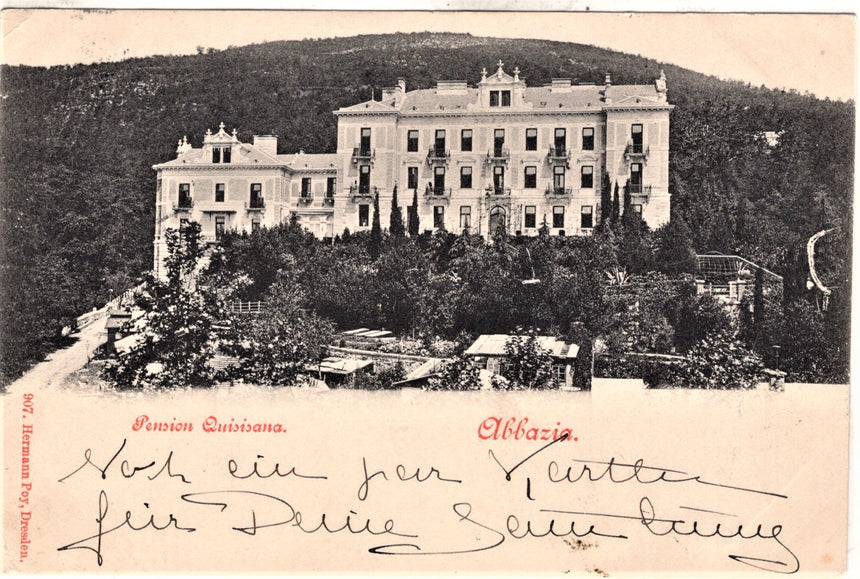 Pension Quisisana.
Abbazia.
Noch ein par Kartten
für Deine Sammlung
907. Hermann Poy, Dresden.